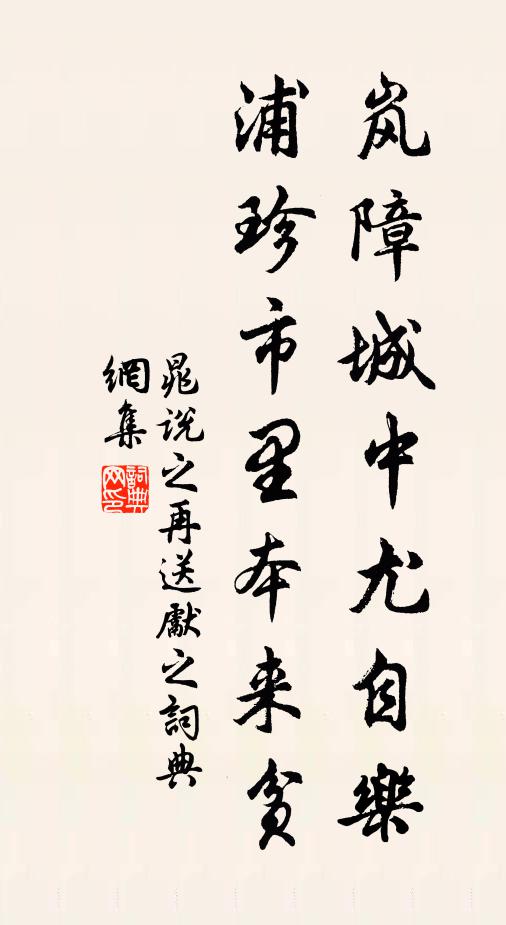 岚障城中尤自樂
浦珍市里本来贫
晁说之再送獻之詞典
網集
詞典网印